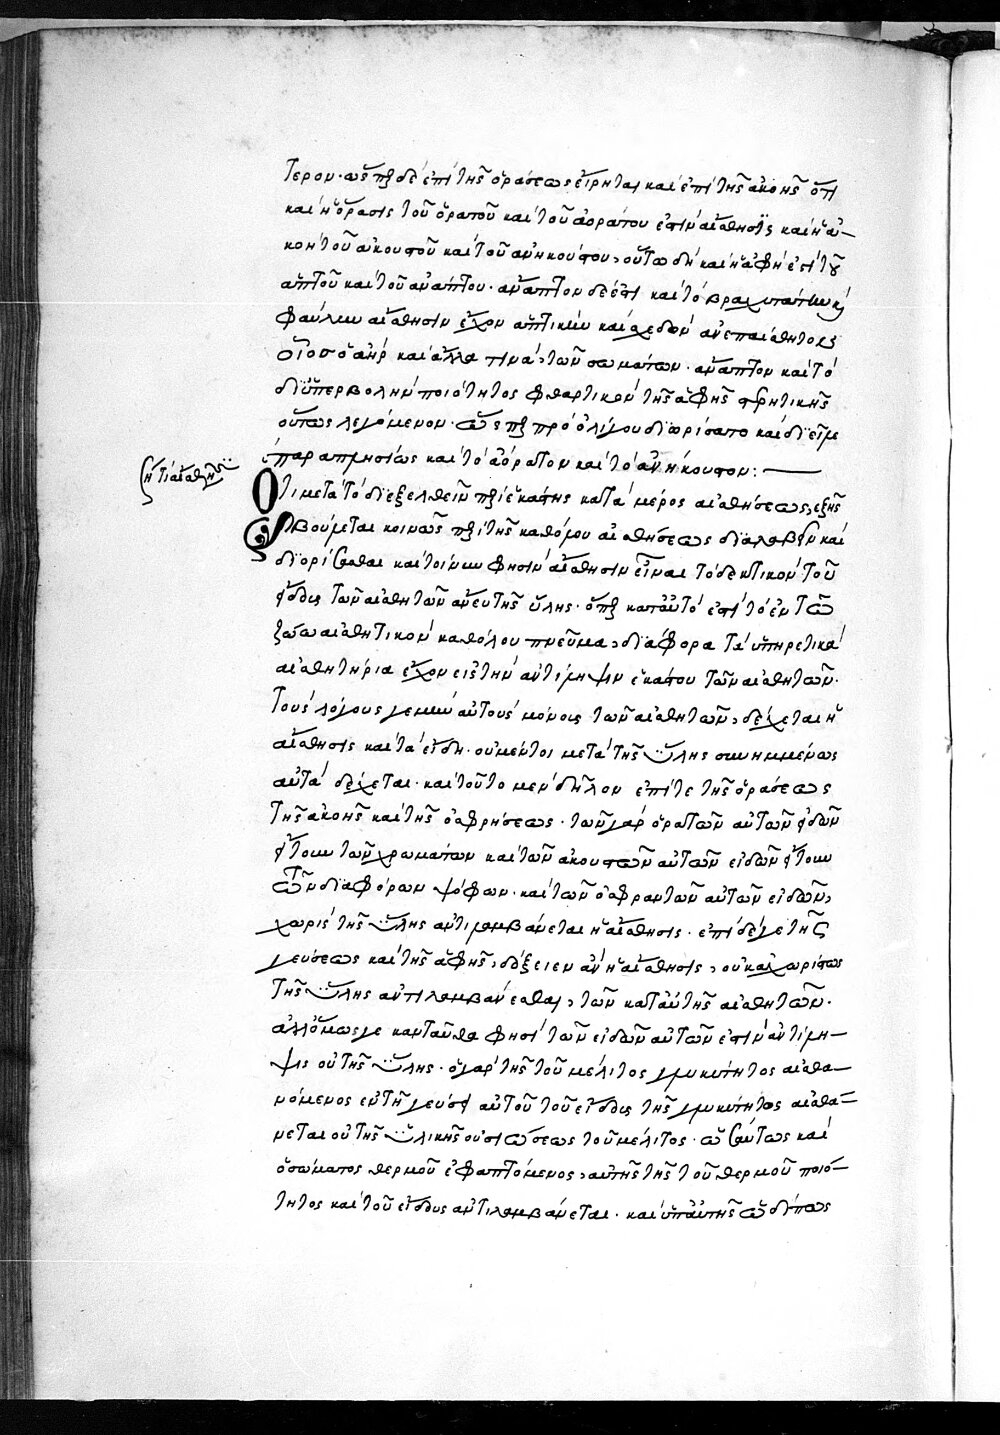 τερον· ὥσπερ δὲ ἐπὶ τῆς ὁράσεως εἴρηται καὶ ἐπὶ τῆς ἀκοῆς ὅτι
καὶ ἡ ὅρασις τοῦ ὁρατοῦ καὶ τοῦ ἀοράτου ἐστὶν αἴσθησις καὶ ἡ ἀ-
κοὴ τοῦ ἀκουστοῦ καὶ τοῦ ἀνηκούστου, οὕτω δὴ καὶ ἡ ἁφὴ ἐπὶ τοῦ
ἁπτοῦ καὶ τοῦ ἀνάπτου· ἄναπτον δὲ ἐστὶ καὶ τὸ βραχυτάτην καὶ
φαύλην αἴσθησιν ἔχον ἁπτικὴν καὶ σχεδὸν ἀνεπαίσθητον
οἷος ὁ ἀὴρ καὶ ἄλλα τινὰ τῶν σωμάτων· ἄναπτον καὶ τὸ
δι' ὑπερβολὴν ποιότητος φθαρτικὸν τῆς ἁφῆς
οὕτως λεγόμενον· ὥσπερ πρὸ ὀλίγου διωρίσατο καὶ διεῖλε
παραπλησίως καὶ τὸ ἀόρατον καὶ τὸ ἀνήκουστον:
τί αἴσθησις
Ὅτι μετὰ τὸ διεξελθεῖν περὶ ἑκάστης κατὰ μέρος αἰσθήσεως, ἑξῆς
βούλεται κοινῶς περὶ τῆς καθόλου αἰσθήσεως διαλαβεῖν καὶ
διορίσασθαι καὶ τοίνυν φησὶν αἴσθησιν εἶναι τὸ δεκτικὸν τοῦ
εἴδους τῶν αἰσθητῶν ἄνευ τῆς ὕλης· ὅπερ κατ' αὐτὸ ἐστὶ τὸ ἐν τῷ
ζώῳ αἰσθητικὸν καθόλου πνεῦμα, διάφορα τὰ ὑπηρετικὰ
αἰσθητήρια ἔχον εἰς τὴν ἀντίληψιν ἑκάστου τῶν αἰσθητῶν·
τοὺς λόγους γε μὴν αὐτοὺς μόνους τῶν αἰσθητῶν, δέχεται ἡ
αἴσθησις καὶ τὰ εἴδη· οὐ μέντοι μετὰ τῆς ὕλης συνημμένως
αὐτὰ δέχεται· καὶ τοῦτο μὲν δῆλον ἐπί τε τῆς ὁράσεως
τῆς ἀκοῆς καὶ τῆς ὀσφρήσεως· τῶν γὰρ ὁρατῶν αὐτῶν εἰδῶν
ἤτουν τῶν χρωμάτων καὶ τῶν ἀκουστῶν αὐτῶν εἰδῶν ἤτουν
τῶν διαφόρων ψόφων· καὶ τῶν ὀσφραντῶν αὐτῶν εἰδῶν,
χωρὶς τῆς ὕλης ἀντιλαμβάνεται ἡ αἴσθησις· ἐπὶ δέ γε τῆς
γεύσεως καὶ τῆς ἁφῆς, δόξειεν ἂν ἡ αἴσθησις, οὐκ ἀχωρίστως
τῆς ὕλης ἀντιλαμβάνεσθαι, τῶν κατ' αὐτῆς αἰσθητῶν·
ἀλλ' ὅμως γε κἀνταῦθα φησὶ τῶν εἰδῶν αὐτῶν ἐστὶν ἀντίλη-
ψις οὐ τῆς ὕλης· ὁ γὰρ τῆς τοῦ μέλιτος γλυκύτητος αἰσθα-
νόμενος ἐν τῇ γεύσει αὐτοῦ τοῦ εἴδους τῆς γλυκύτητος αἰσθά-
νεται οὐ τῆς ὑλικῆς οὐσιώσεως τοῦ μέλιτος· ὡσαύτως καὶ
ὁ σώματος θερμοῦ ἐφαπτόμενος, αὐτῆς τῆς τοῦ θερμοῦ ποιό-
τητος καὶ τοῦ εἴδους ἀντιλαμβάνεται· καὶ ὑπ' αὐτῆς